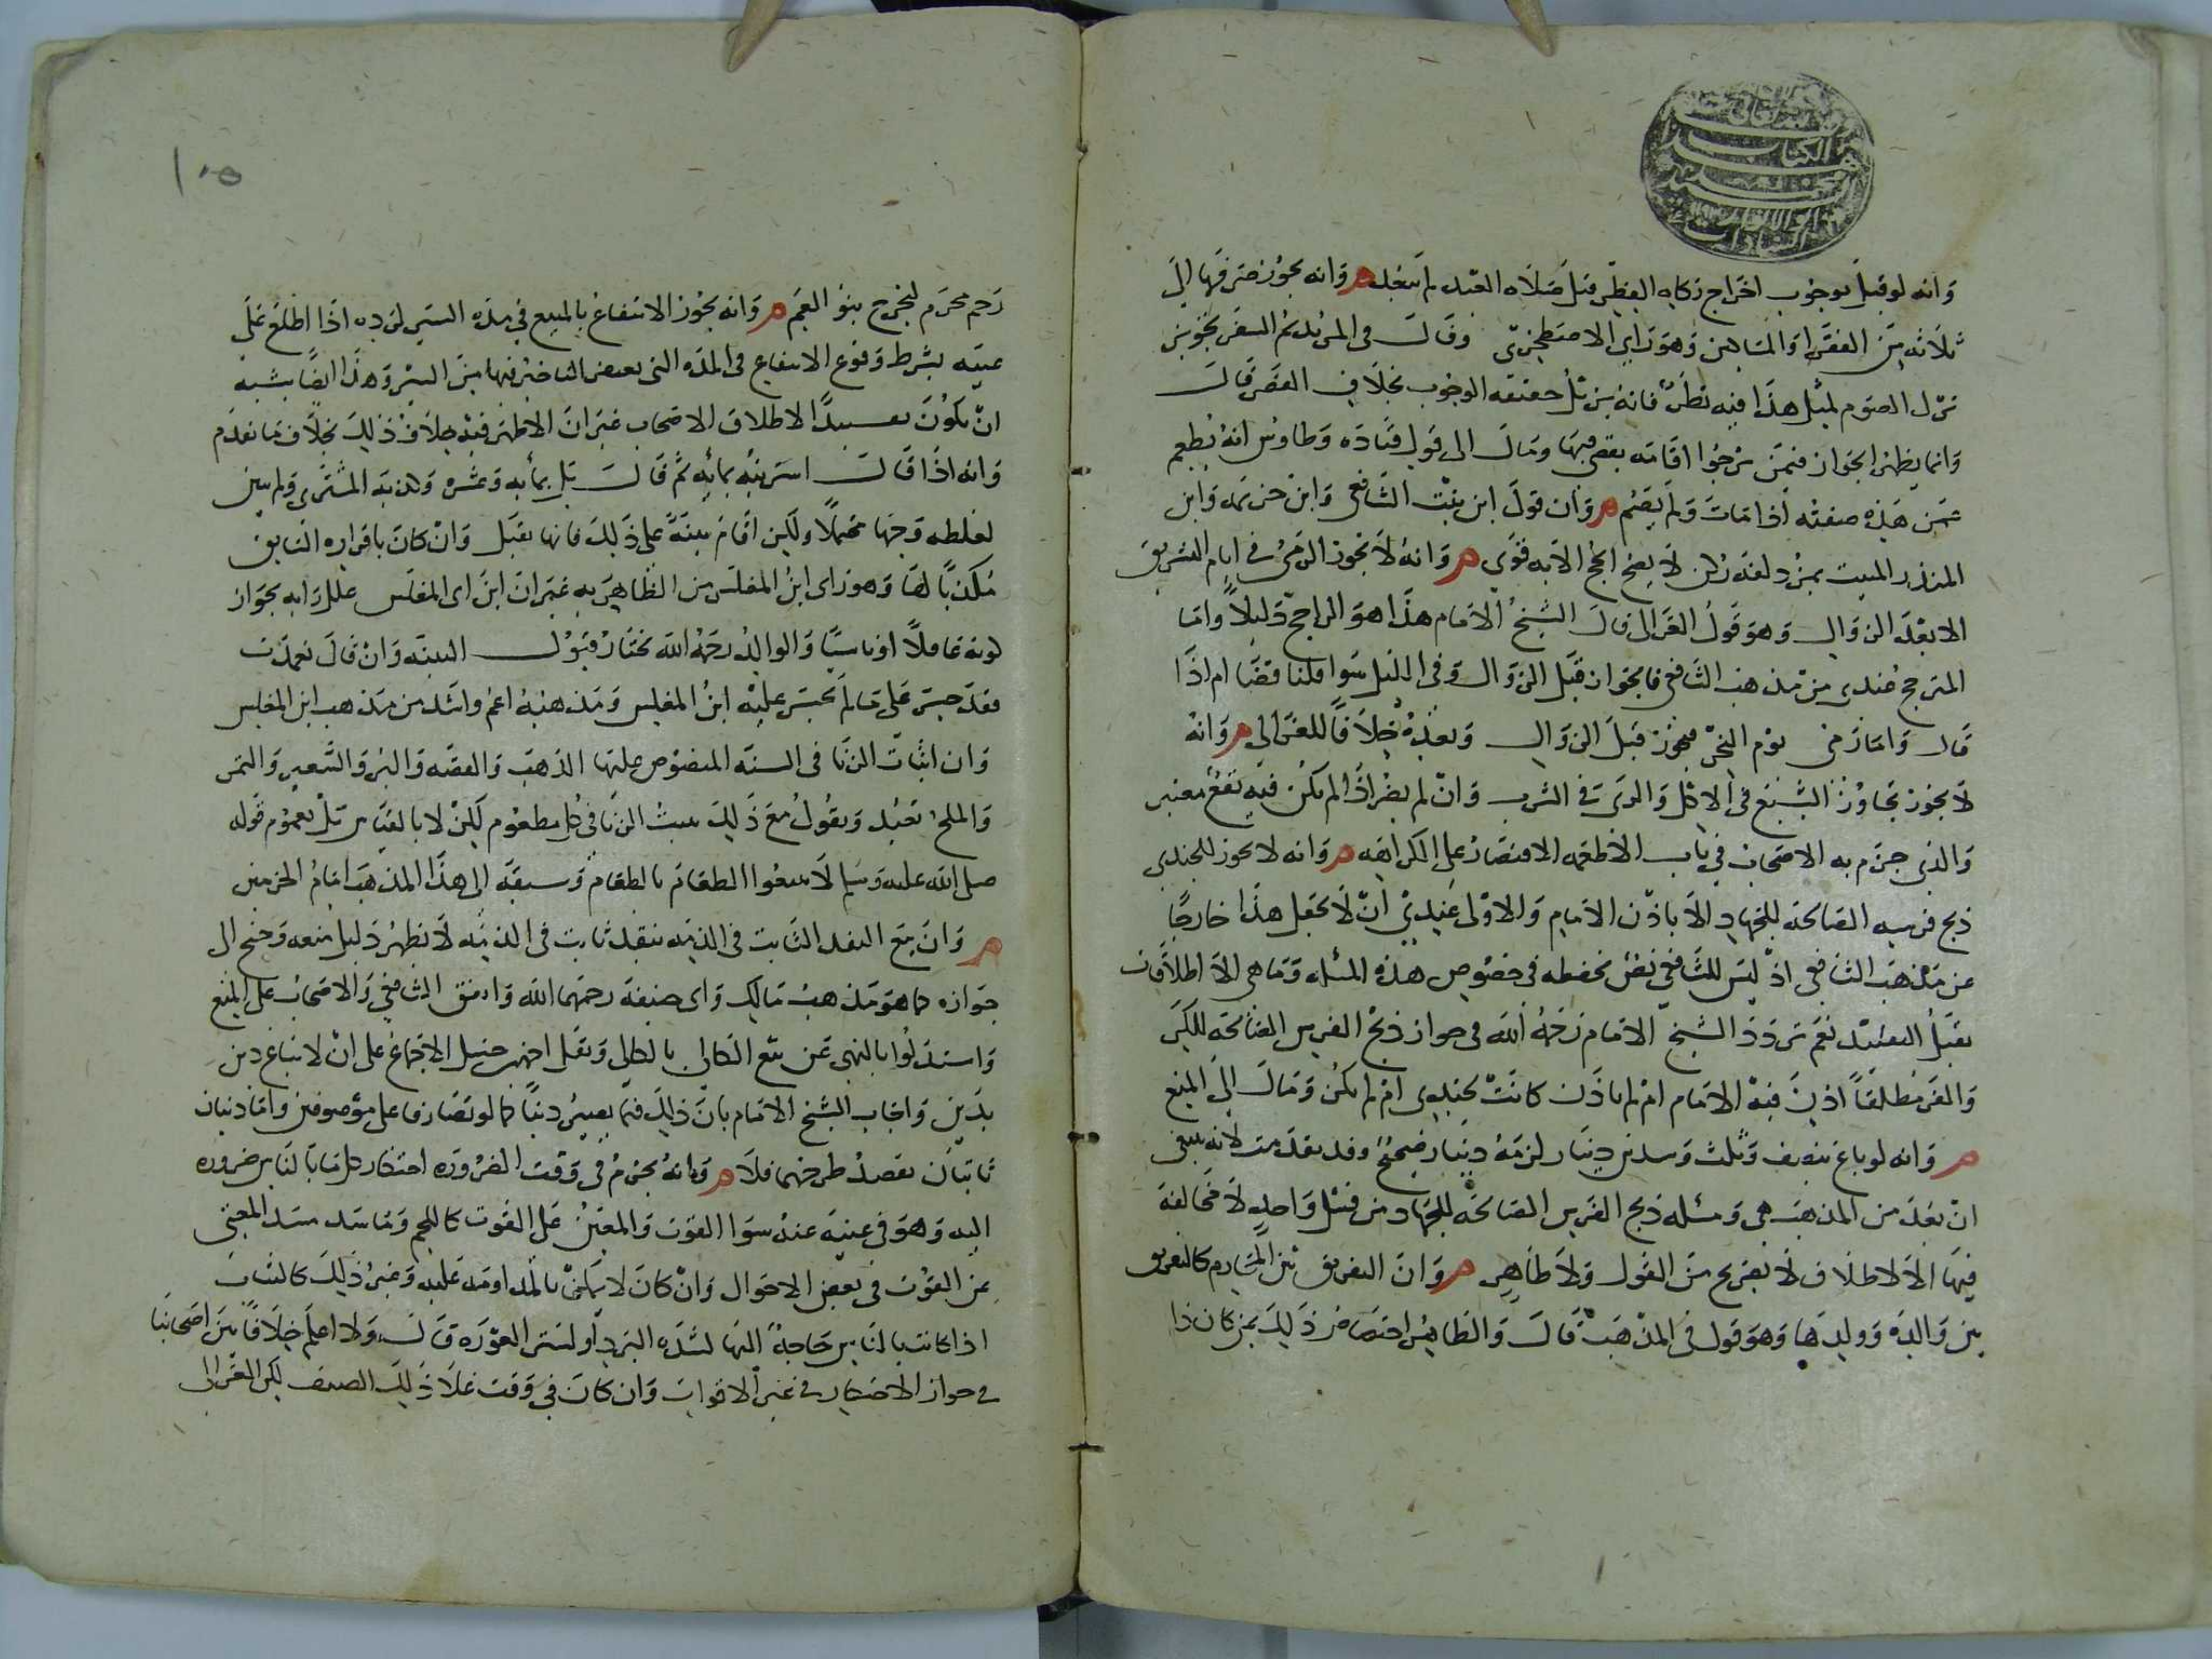 وانه لو قيل بوجوب اخراج زكاه الفطر قبل صلاه العيد لم يبعد ه وانه يجوز صرفها الى
ثلاثه من الفقرا او المساكين وهو راي الاصطخري وقال في المريد ثم السفر يجويز
ترك الصوم لمثل هذا فيه نظر فانه يزيل حقيقه الوجوب بخلاف القصر قال
وانما يظهر الجواز فيمن يرجوا اقامه يقضي فيها ومال الى قول قتاده وطاوس انه يطعم
عمن هذه صفته اذا مات ولم يصم ه وان قول ابن بنت الشافعي وابن خزيمه وابن
المنذر المبيت بمزدلفه ركن لا يصح الحج الا به قوي ه وانه لا يجوز الرمي في ايام التشريق
الا بعد الزوال وهو قول الغزالي قال الشيخ الامام هذا هو الراجح دليلا واما
المترجح عندي من مذهب الشافعي فالجواز قبل الزوال وفي الليل سوا قلنا قضا ام اذا
قال واما رمي يوم النحر فيجوز قبل الزوال وبعده خلافا للغزالي ه وانه
لا يجوز تجاوز الشبع في الاكل والري في الشرب وان لم يضر اذا لم يكن فيه نفع معتبر
والذي جزم به الاصحاب في باب الاطعمه الاقتصار على الكراهه ه وانه لا يجوز للجندي
ذبح فرسه الصالحه للجهاد الا باذن الامام والاولى عندي ان لا يجعل هذا خارجا
عن مذهب الشافعي اذ ليس للشافعي نص نحفظه في خصوص هذه المسئله وما هي الا اطلاقات
يقبل التقييد نعم تردد الشيخ الامام رحمه الله في جواز ذبح الفرس الصالحه للكر
والفر مطلقا اذن فيه الامام ام لم ياذن كانت لجندي ام لم يكن ومال الى المنع
ه وانه لو باع بنصف وثلث وسدس دينار لزمه دينار صحيح وقد تقدمت لانه ينبغي
ان يعد من المذهب هي ومسئله ذبح الفرس الصالحه للجهاد من قبيل واحد لا مخالفه
فيها الا لاطلاق لا بصريح من القول ولا ظاهر ه وان التفريق بين المحارم كالتفريق
بين والده وولدها وهو قول في المذهب قال والظاهر اختصاص ذلك بمن كان ذا
١٠٥
رحم محرم ليخرج بنو العم ه وانه يجوز الانتفاع بالمبيع في مده السير لرده اذا اطلع على
عيبه بشرط وقوع الانتفاع في المده التي يغتفر التاخير فيها من السير وهذا ايضا يشبه
ان يكون تقييدا لاطلاق الاصحاب غير ان الاظهر فيه خلاف ذلك بخلاف ما تقدم
وانه اذا قال اشتريته بمائه ثم قال بل بمائه وعشره وكذبه المشتري ولم يبين
لغلطه وجها محتملا ولكن اقام بينه على ذلك فانها تقبل وان كان باقراره السابق
مكذبا لها وهو راي ابن المغلس من الظاهريه غير ان ابن المغلس علل رايه بجواز
كونه غافلا او ناسيا والوالد رحمه الله يختار قبول البينه وان قال تعمدت
فقد جسر على ما لم يجسر عليه ابن المغلس ومذهبه اعم واشد من مذهب ابن المغلس
وان اثبات الربا في السته المنصوص عليها الذهب والفضه والبر والشعير والتمر
والملح تعبد ويقول مع ذلك يثبت الربا في كل مطعوم لكن لا بالقياس بل بعموم قوله
صلى الله عليه وسلم لا تبيعوا الطعام بالطعام وسبقه الى هذا المذهب امام الحرمين
ه وان بيع النقد الثابت في الذمه بنقد ثابت في الذمه لا يظهر دليل منعه وجنح الى
جوازه كما هو مذهب مالك وابي حنيفه رحمهما الله واتفق الشافعي والاصحاب على المنع
واستدلوا بالنهي عن بيع الكالي بالكالي ونقل احمد بن حنبل الاجماع على ان لا يباع دين
بدين واجاب الشيخ الامام بان ذلك فيما يصير دينا كما لو تصارفا على موصوفين واما دينان
ثابتان يقصد طرحهما فلا ه وانه يحرم في وقت الضروره احتكار كل ما بالناس ضروره
اليه وهو في غنيه عنه سوا القوت والمعين على القوت كاللحم وما سد مسد المغني
عن القوت في بعض الاحوال وان كان لا يمكن بالمداومه عليه وغير ذلك كالثياب
اذا كانت بالناس حاجه اليها لشده البرد او لستر العوره قال ولا اعلم خلافا بين اصحابنا
في جواز الاحتكار في غير الاقوات وان كان في وقت غلا ذلك الصنف لكن الغزالي